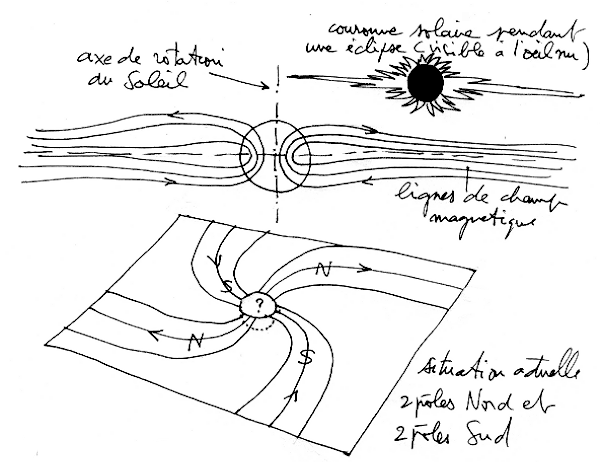 couronne solaire pendant
une éclipse (visible à l'oeil nu)
axe de rotation
du Soleil
lignes de champ
magnetique
N
S
?
N
S
situation actuelle
2 pôles Nord et
2 pôles Sud